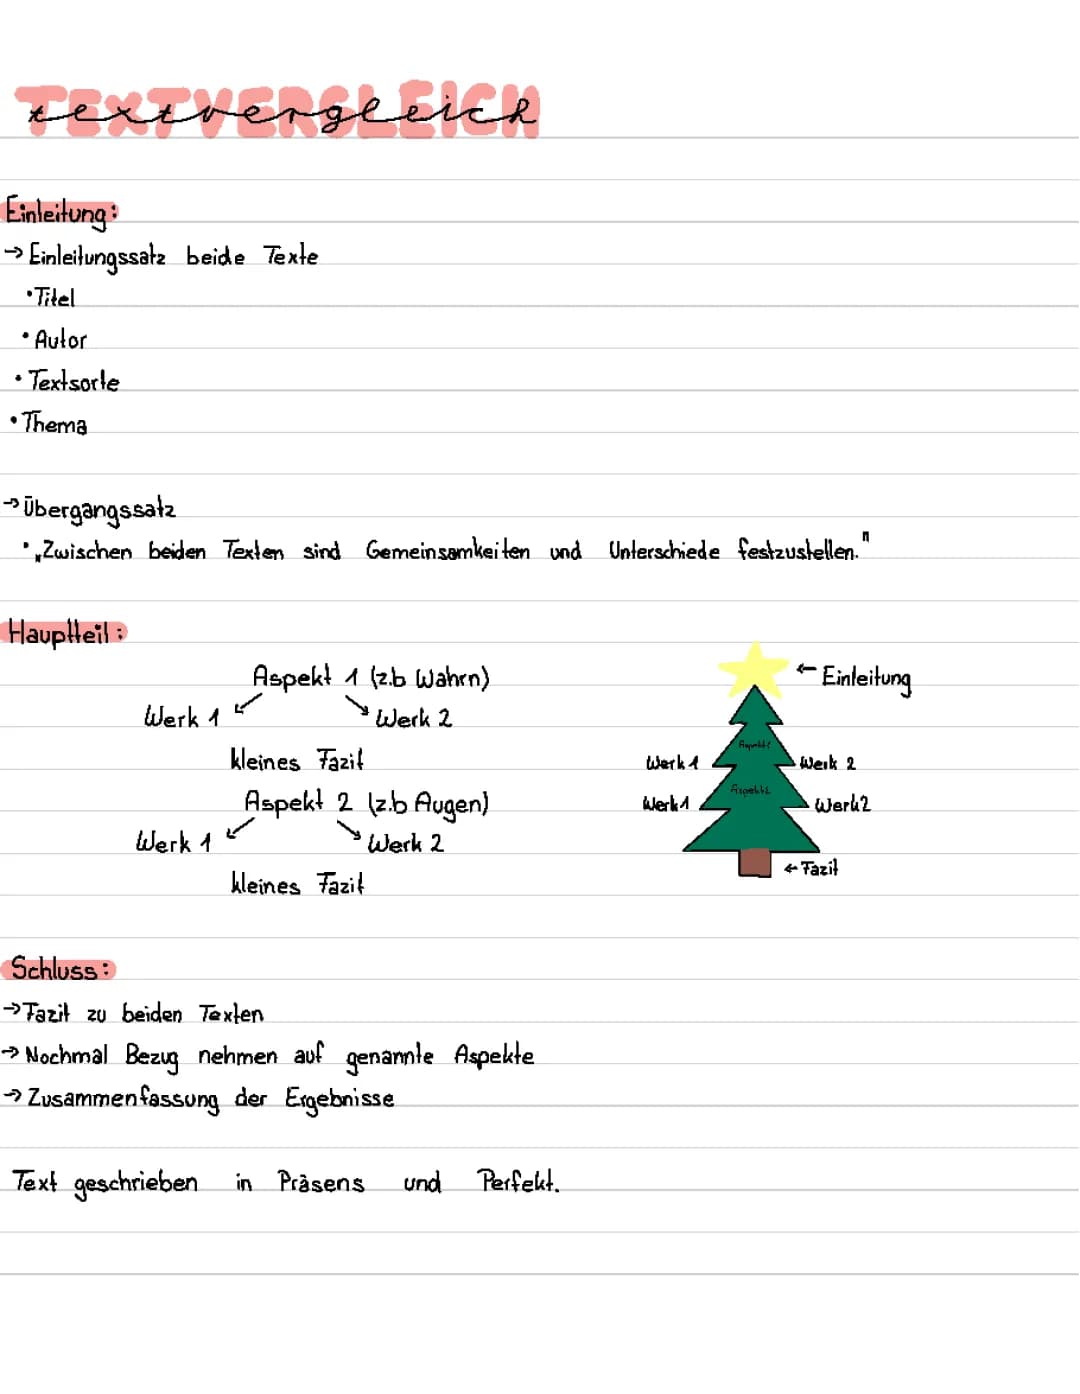 textvergleich
Einleitung:
→ Einleitungssatz beide Texte
• Titel
• Autor
• Textsorte
• Thema
→ Übergangssatz
• „Zwischen beiden Texten sind Gemeinsamkeiten und Unterschiede festzustellen."
Hauptteil:
Aspekt 1 (z.b Wahrn)
Werk 1 Werk 2
kleines Fazit
Aspekt 2 (z.b Augen)
Werk 1 Werk 2
kleines Fazit
← Einleitung
Aspekt 1
Werk 1 Werk 2
Aspekt 2
Werk 1 Werk 2
← Fazit
Schluss:
→ Fazit zu beiden Texten
→ Nochmal Bezug nehmen auf genannte Aspekte
→ Zusammenfassung der Ergebnisse
Text geschrieben in Präsens und Perfekt.